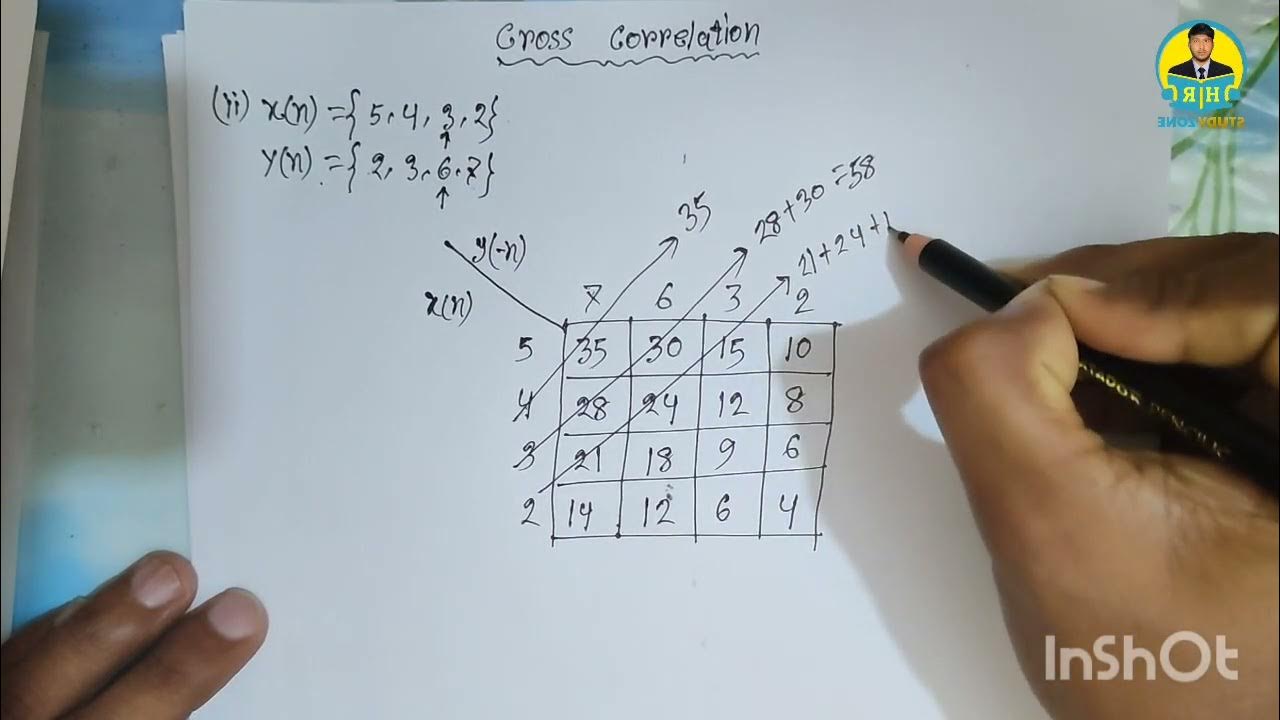 Cross Correlation
(ii) x(n) = { 5, 4, 3, 2}
↑
y(n) = { 2, 3, 6, 7}
↑
35
28+30=58
21+24+1
y(-n)
x(n)
7 6 3 2
5 35 30 15 10
4 28 24 12 8
3 21 18 9 6
2 14 12 6 4
HR
STUDY ZONE
InShOt